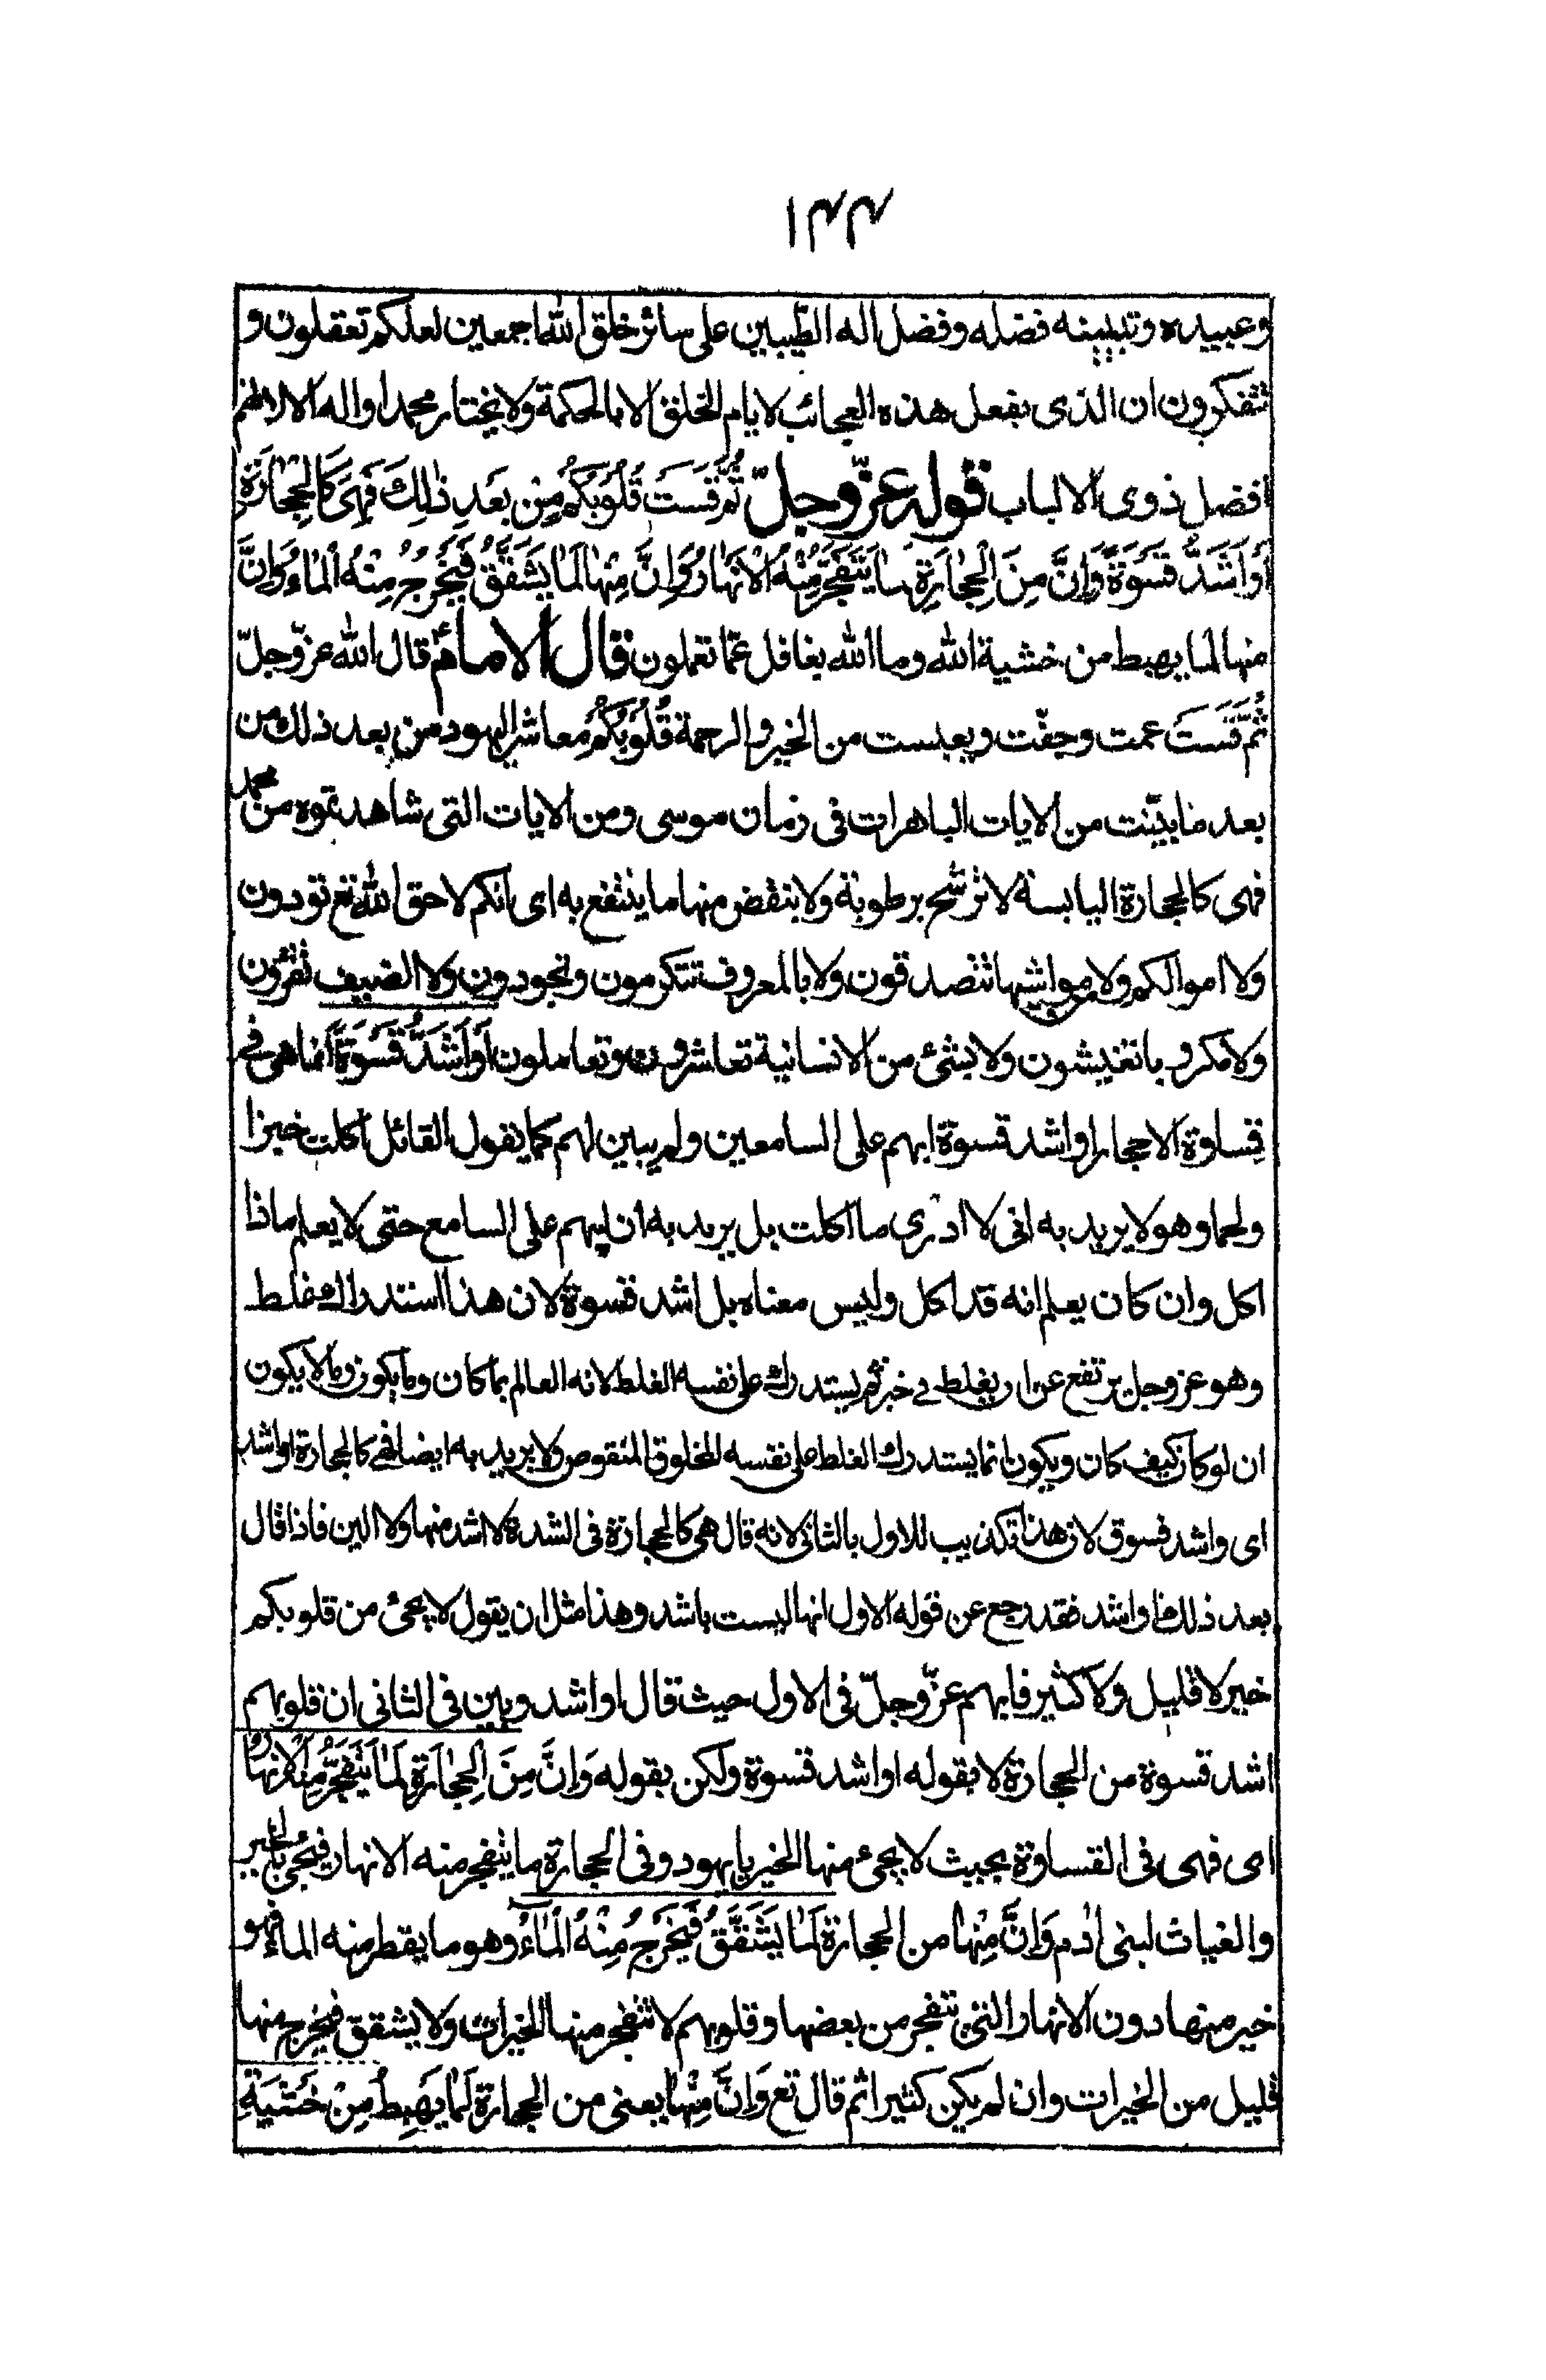 ١٣٣
وعبيده وتبيينه فضله وفضل اله الطّيبين على سائر خلق الله اجمعين لعلكم تعقلون و
تتفكرون ان الذى يفعل هذه العجائب لا يامر الخلق الا بالحكمة ولا يختار محمدا واله الا لانهم
افضل ذوى الالباب قوله عزّوجلّ ثُمَّ قَسَتْ قُلُوبُكُمْ مِنْ بَعْدِ ذٰلِكَ فَهِىَ كَالْحِجٰارَةِ
أَوْ أَشَدُّ قَسْوَةً وَإِنَّ مِنَ الْحِجٰارَةِ لَمٰا يَتَفَجَّرُ مِنْهُ الْأَنْهٰارُ وَإِنَّ مِنْهٰا لَمٰا يَشَّقَّقُ فَيَخْرُجُ مِنْهُ الْمٰاءُ وَإِنَّ
منها لما يهبط من خشية الله وما الله بغافل عمّا تعملون قال الامامؑ قال الله عزّوجلّ
ثُمَّ قَسَتْ عمت وجفّت ويبست من الخير والرحمة قُلُوبُكُمْ معاشر اليهود من بعد ذلك من
بعد ما بيّنت من الايات الباهرات فى زمان موسى ومن الايات التى شاهدتموه من محمد
فهى كالحجارة اليابسة لا ترشّح برطوبة ولا ينتفض منها ما ينتفع به اى انكم لا حق الله تع تودون
ولا اموالكم ولا مواشيها تتصدقون ولا بالمعروف تتكرمون وتجودون ولا الضيف تقرؤن
ولا مكروبا تغيثون ولا بشئ من الانسانية تعاشرون وتعاملون أَوْ أَشَدُّ قَسْوَةً انما هى فى
قساوة الاحجار او اشد قسوة ابهم على السامعين ولم يبين لهم كما يقول القائل اكلت خبزا
ولحما وهو لا يريد به انى لا ادرى ما اكلت بل يريد به ان يبهم على السامع حتى لا يعلم ماذا
اكل وان كان يعلم انه قد اكل وليس معناه بل اشد قسوة لان هذا استدراك غلط
وهو عزوجل يرتفع عن ان يغلط فى خبر ثم يستدرك على نفسه الغلط لانه العالم بما كان وما يكون وما لا يكون
ان لو كان كيف كان ويكون انما يستدرك الغلط على نفسه المخلوق المنقوص ولا يريد به ايضا فهى كالحجارة او اشد
اى واشد قسوة لان هذا تكذيب للاول بالثانى لانه قال هى كالحجارة فى الشدة لا اشد منها ولا الين فاذا قال
بعد ذلك او اشد فقد رجع عن قوله الاول انها ليست باشد وهذا مثل ان يقول لا يجئ من قلوبكم
خير لا قليل ولا كثير فابهم عزّوجلّ فى الاول حيث قال او اشد وبين فى الثانى ان قلوبهم
اشد قسوة من الحجارة لا بقوله او اشد قسوة ولكن بقوله وَإِنَّ مِنَ الْحِجٰارَةِ لَمٰا يَتَفَجَّرُ مِنْهُ الْأَنْهٰارُ
اى فهى فى القساوة بحيث لا يجئ منها الخير يا يهود وفى الحجارة ما يتفجر منه الانهار فيجئ بالخير
والغياث لبنى ادم وَإِنَّ مِنْهٰا من الحجارة لَمٰا يَشَّقَّقُ فَيَخْرُجُ مِنْهُ الْمٰاءُ وهو ما يقطر منه الماء فهو
خير منها دون الانهار التى تتفجر من بعضها وقلوبهم لا تتفجر منها الخيرات ولا يشقق فيخرج منها
قليل من الخيرات وان لم يكن كثيرا ثم قال تع وَإِنَّ مِنْهٰا يعنى من الحجارة لَمٰا يَهْبِطُ مِنْ خَشْيَةِ